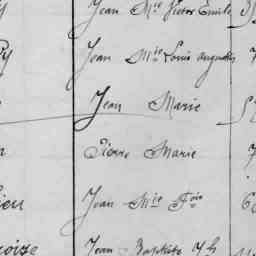 Jean Mie Victor Emile
Jean Mie Louis Augustin
Jean Marie
Pierre Marie
ieu Jean Mie
oize Jean Baptiste